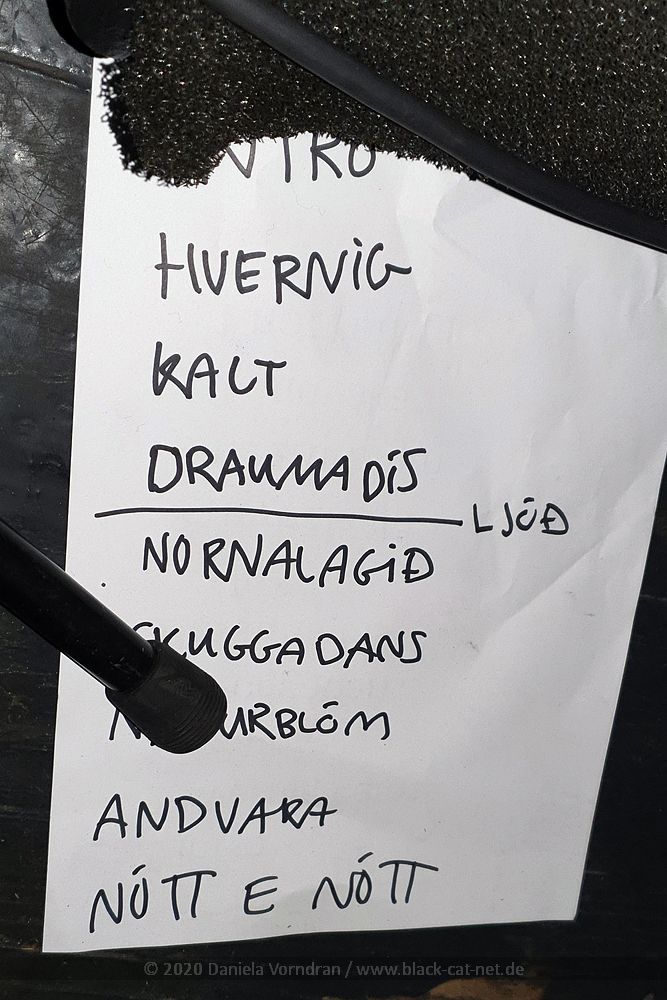 HVERNIG
KALT
DRAUMADÍS
LJÓÐ
NORNALAGIÐ
SKUGGADANS
ANDVARA
NÓTT E NÓTT
© 2020 Daniela Vorndran / www.black-cat-net.de